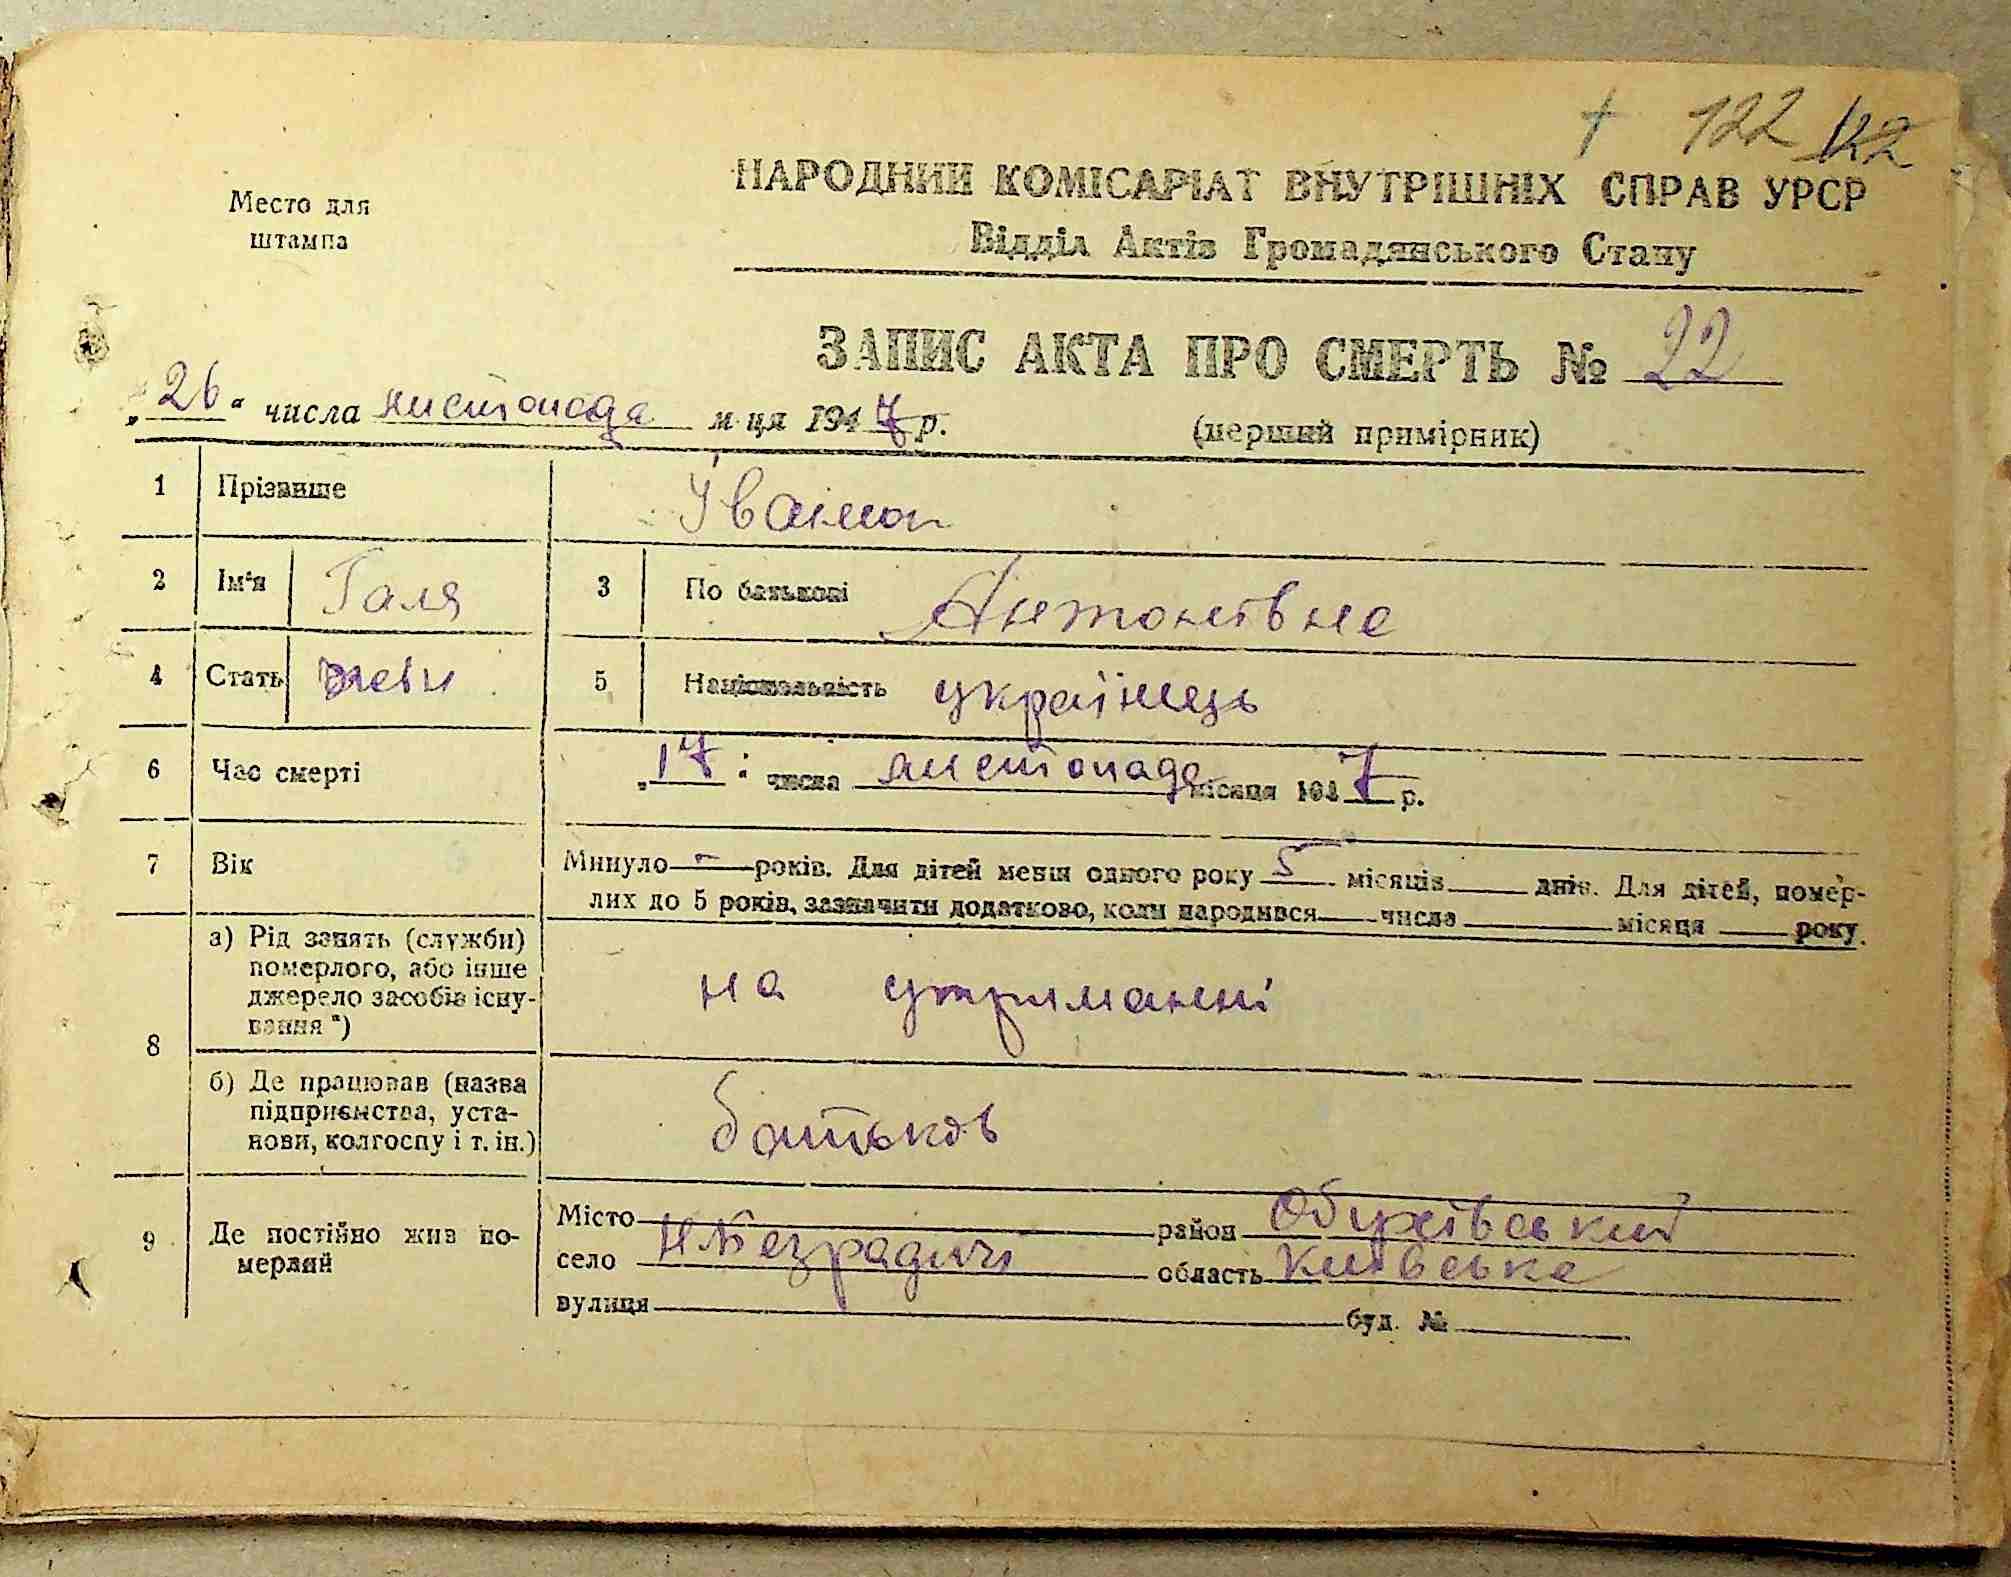 + 122 122
Место для
штампа
НАРОДНИЙ КОМІСАРІАТ ВНУТРІШНІХ СПРАВ УРСР
Відділ Актів Громадянського Стану
ЗАПИС АКТА ПРО СМЕРТЬ № 22
„26“ числа листопада м-ця 1947 р.
(перший примірник)
1 Прізвище
2 Ім'я Галя 3 По батькові Антонівна
4 Стать 5 Національність українець
6 Час смерті „17: числа листопада місяця 1947 р.
7 Вік Минуло - років. Для дітей менш одного року 5 місяців днів. Для дітей, помер-
лих до 5 років, зазначити додатково, коли народився числа місяця року.
8 а) Рід занять (служби)
померлого, або інше
джерело засобів існу-
вання *)
на утриманні
б) Де працював (назва
підприємства, уста-
нови, колгоспу і т. ін.)
батьків
9 Де постійно жив по-
мерлий
Місто район Обухівський
село Н Безрадичі область Київська
вулиця буд. №